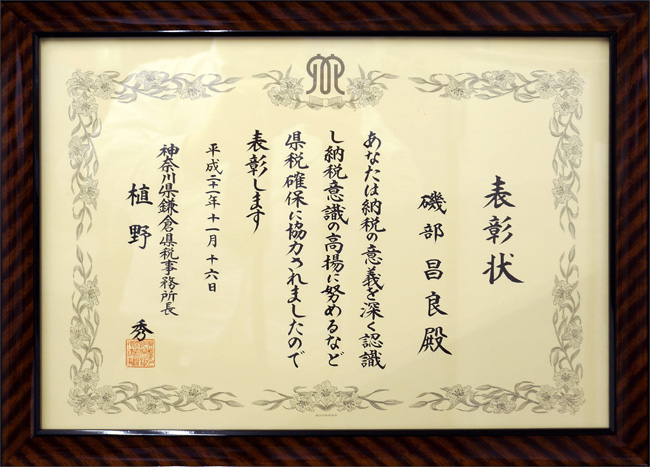 表彰状
磯部昌良殿
あなたは納税の意義を深く認識
し納税意識の高揚に努めるなど
県税確保に協力されましたので
表彰します
平成二十一年十一月十六日
神奈川県鎌倉県税事務所長
植野 秀